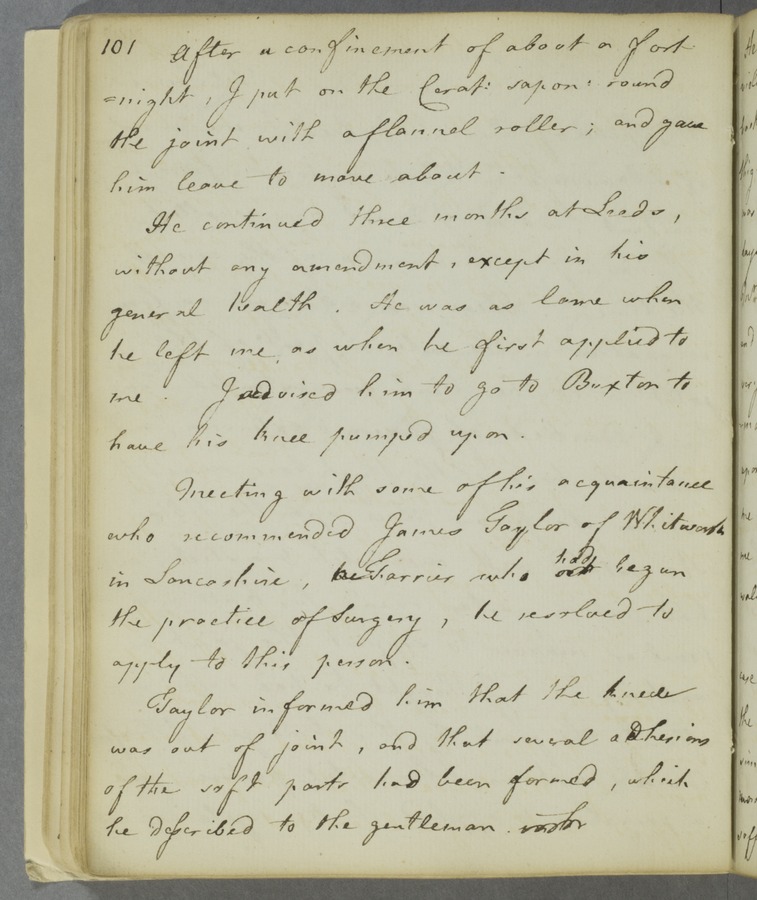 101 After a confinement of about a fort
=night, I put on the Cerat: sapon: round
the joint with a flannel roller; and gave
him leave to move about.
He continued three months at Leeds,
without any amendment, except in his
general health. He was as lame when
he left me, as when he first applied to
me. I advised him to go to Buxton to
have his knee pumped upon.
Meeting with some of his acquaintance
who recommended James Taylor of Whitworth
had
in Lancashire, a Farrier who begun
the practice of Surgery, he resolved to
apply to this person.
Taylor informed him that the knee
was out of joint, and that several adhesions
of the soft parts had been formed, which
he described to the gentleman.